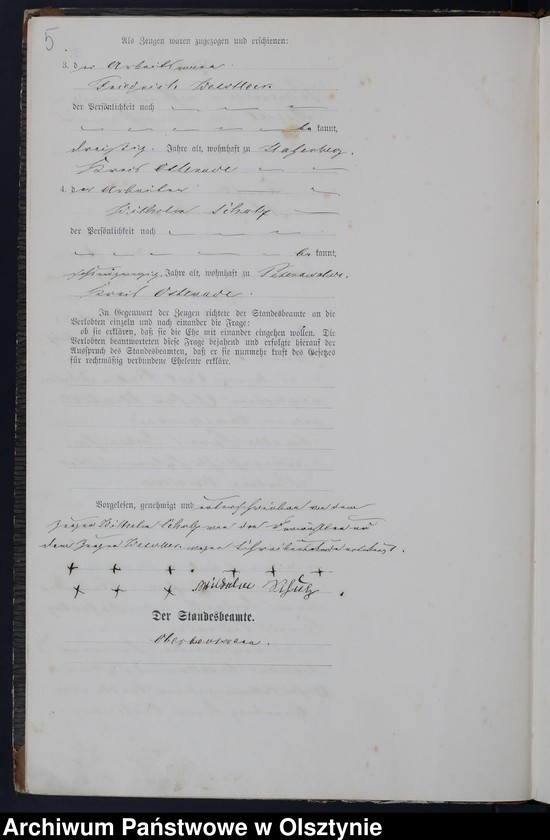 5
Als Zeugen waren zugezogen und erschienen:
3. der Arbeitsmann
Friedrich
der Persönlichkeit nach
be kannt,
dreißig Jahre alt, wohnhaft zu
Kreis Osterode
4. der Arbeiter
Wilhelm Schulz
der Persönlichkeit nach
be kannt,
Jahre alt, wohnhaft zu Peterswalde.
Kreis Osterode.
In Gegenwart der Zeugen richtete der Standesbeamte an die
Verlobten einzeln und nach einander die Frage:
ob sie erklären, daß sie die Ehe mit einander eingehen wollen. Die
Verlobten beantworteten diese Frage bejahend und erfolgte hierauf der
Ausspruch des Standesbeamten, daß er sie nunmehr kraft des Gesetzes
für rechtmäßig verbundene Eheleute erkläre.
Vorgelesen, genehmigt und unterschrieben von dem
Zeugen Wilhelm Schulz von den
dem Zeugen wegen
+ + + + + +
+ + + Wilhelm Schulz.
Der Standesbeamte.
Archiwum Państwowe w Olsztynie